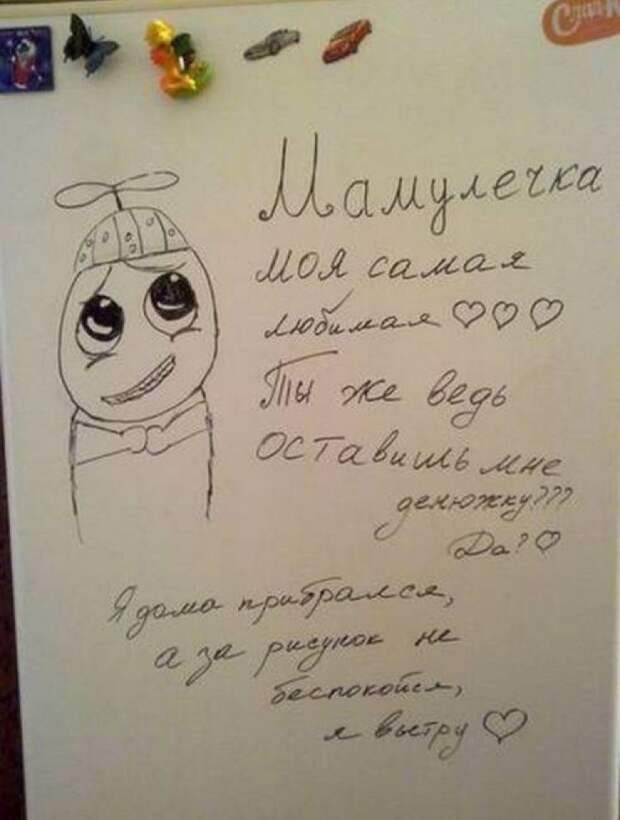 Слад
Мамулечка
моя самая
любимая ♡♡♡
Ты же ведь
оставишь мне
денюжку???
Да? ♡
Я дома прибрался,
а за рисунок не
беспокойся,
я вытру ♡